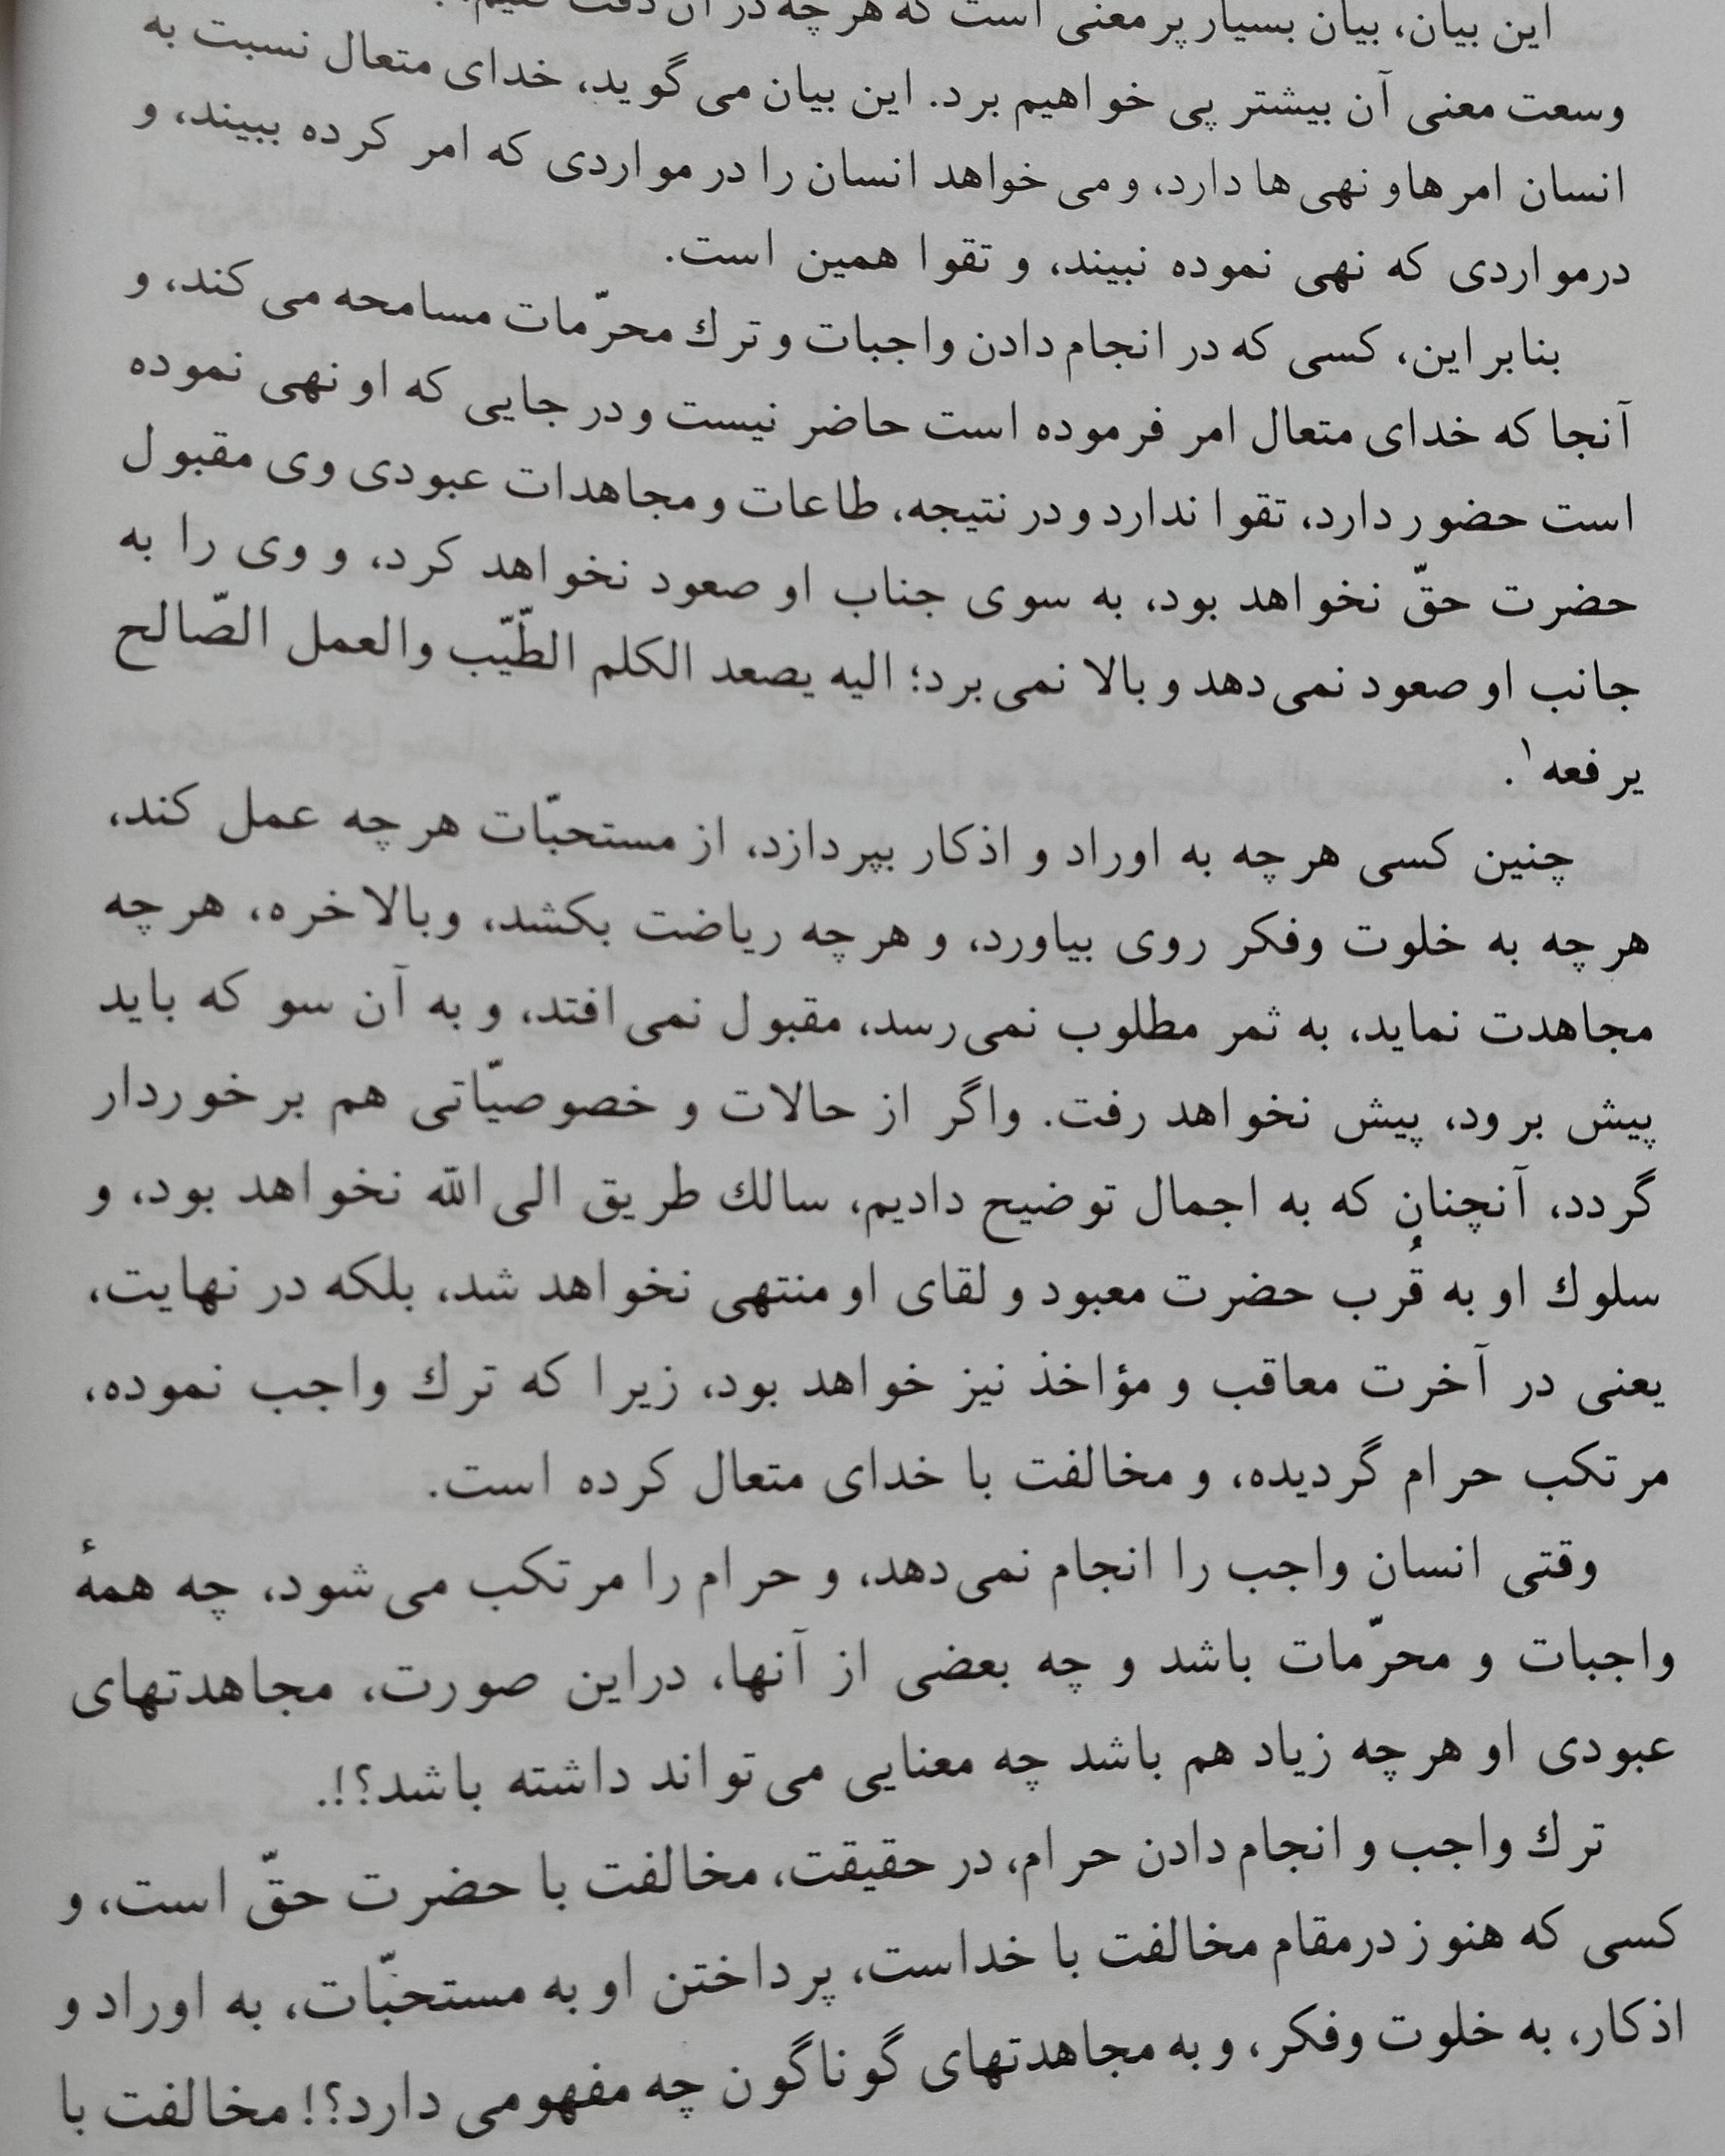 این بیان، بیان بسیار پر معنی است که هر چه در آن دقت کنیم،
وسعت معنی آن بیشتر پی خواهیم برد. این بیان می گوید، خدای متعال نسبت به
انسان امرها و نهی ها دارد، و می خواهد انسان را در مواردی که امر کرده ببیند، و
در مواردی که نهی نموده نبیند، و تقوا همین است.
بنابراین، کسی که در انجام دادن واجبات و ترك محرّمات مسامحه می کند، و
آنجا که خدای متعال امر فرموده است حاضر نیست و در جایی که او نهی نموده
است حضور دارد، تقوا ندارد و در نتیجه، طاعات و مجاهدات عبودی وی مقبول
حضرت حقّ نخواهد بود، به سوی جناب او صعود نخواهد کرد، و وی را به
جانب او صعود نمی دهد و بالا نمی برد؛ الیه یصعد الکلم الطّیّب والعمل الصّالح
یرفعه۱.
چنین کسی هر چه به اوراد و اذکار بپردازد، از مستحبّات هر چه عمل کند،
هر چه به خلوت وفکر روی بیاورد، و هر چه ریاضت بکشد، وبالاخره، هر چه
مجاهدت نماید، به ثمر مطلوب نمی رسد، مقبول نمی افتد، و به آن سو که باید
پیش برود، پیش نخواهد رفت. واگر از حالات و خصوصیّاتی هم برخوردار
گردد، آنچنان که به اجمال توضیح دادیم، سالك طریق الی الله نخواهد بود، و
سلوك او به قُرب حضرت معبود و لقای او منتهی نخواهد شد، بلکه در نهایت،
یعنی در آخرت معاقب و مؤاخذ نیز خواهد بود، زیرا که ترك واجب نموده،
مرتکب حرام گردیده، و مخالفت با خدای متعال کرده است.
وقتی انسان واجب را انجام نمی دهد، و حرام را مرتکب می شود، چه همهٔ
واجبات و محرّمات باشد و چه بعضی از آنها، دراین صورت، مجاهدتهای
عبودی او هر چه زیاد هم باشد چه معنایی می تواند داشته باشد؟!.
ترك واجب و انجام دادن حرام، در حقیقت، مخالفت با حضرت حقّ است، و
کسی که هنوز درمقام مخالفت با خداست، پرداختن او به مستحبّات، به اوراد و
اذکار، به خلوت وفکر، و به مجاهدتهای گوناگون چه مفهومی دارد؟! مخالفت با